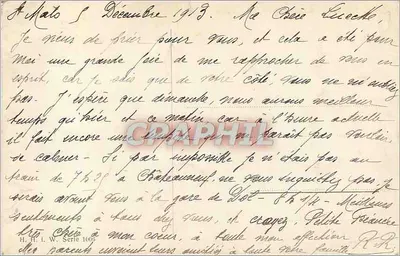 St Malo 5 Décembre 1913. Ma Chère Lucette,
Je viens de prier pour vous, et cela a été pour
moi une grande joie de me rapprocher de vous en
esprit, car je sais que de votre côté, vous ne m'oubliez
pas. J'espère que dimanche, nous aurons meilleur
temps qu'hier et ce matin, car à l'heure actuelle
il fait encore un qui ne paraît pas vouloir
se calmer. Si par impossible je n'étais pas au
train de 7h25 à Châteauneuf, ne vous inquiétez pas, je
serais avant vous à la gare de Dol - 8h1/4 - Meilleurs
sentiments à tous chez vous, et croyez, Petite Fiancée
très chère à mon coeur, à toute mon affection
H. H. I. W. Série 1605
Mes parents envoient leurs amitiés à toute votre famille R.R.
CPAPHIL